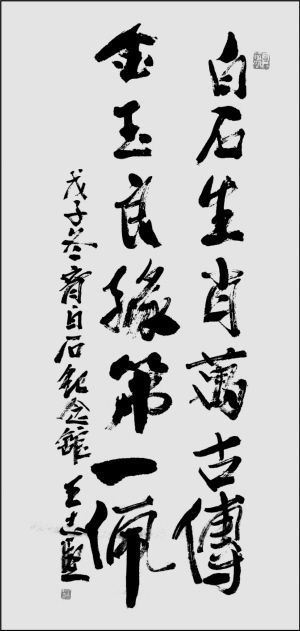 白石生肖萬古傳
金玉良緣第一佩
戊子冬齊白石紀念館 王志